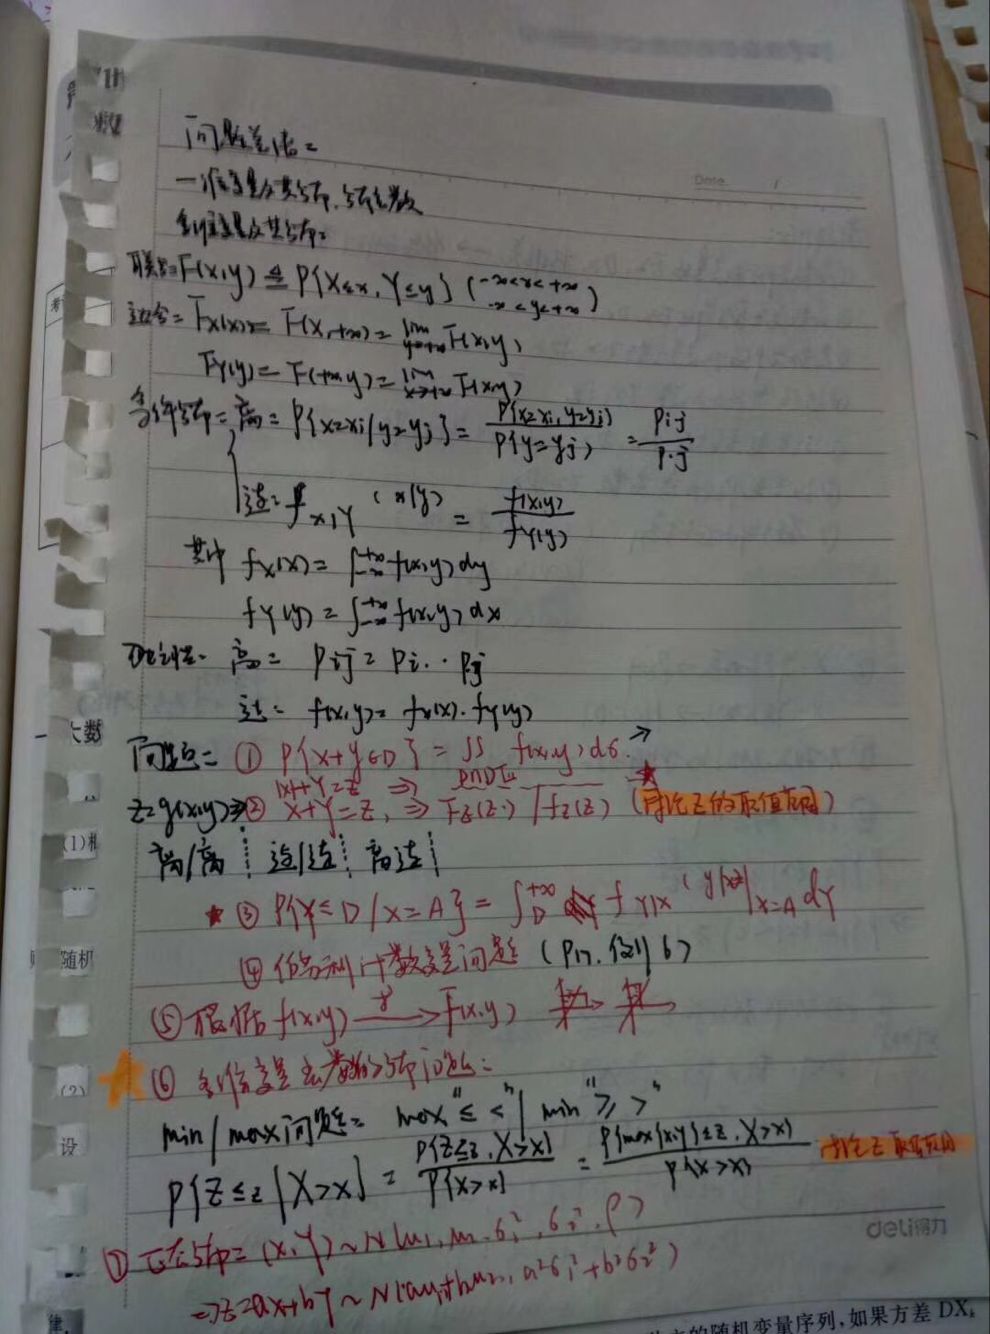 问题总结=
一维变量及其分布、分布函数
多维变量及其分布=
联合=F(x,y) ≜ P{X≤x, Y≤y} (-∞<x<+∞
-∞<y<+∞)
边缘= Fx(x)= F(x,+∞)= lim y→+∞ F(x,y)
FY(y)= F(+∞,y)= lim x→+∞ F(x,y)
条件分布= 离= P{x=xi|y=yj}= P{x=xi, y=yj} / P{y=yj} = Pij / P·j
连= f X|Y (x|y) = f(x,y) / fY(y)
其中 fX(x)= ∫-∞ +∞ f(x,y) dy
fY(y)= ∫-∞ +∞ f(x,y) dx
独立性= 离= Pij = Pi· · P·j
连= f(x,y)= fx(x)·fY(y)
问题= ① P{X+Y∈D}= ∬ f(x,y) dσ →
z=g(x,y)⇒② X+Y=Z, ⇒ Fz(z) / fz(z) (讨论Z的取值范围)
离/离 连/连 离连
★③ P{Y≤D/X=A}= ∫D +∞ f Y|X (y|x)|x=A dy
④
⑤ 根据f(x,y) → F(x,y)
⑥ 多维变量函数分布问题:
min/max问题= max "≤ <" | min "≥ >"
P{Z≤z|X>x} = P{Z≤z, X>x} / P{X>x} = P{max(x,y)≤z, X>x} / P{X>x} 讨论Z取值范围
deli得力
⑦ 正态分布= (X,Y)~N(μ1, μ2, σ1², σ2², ρ)
⇒Z=aX+bY~N(aμ1+bμ2, a²σ1²+b²σ2²)
Date
大数
(1)
随机
(2)
设
律
的随机变量序列,如果方差 DX